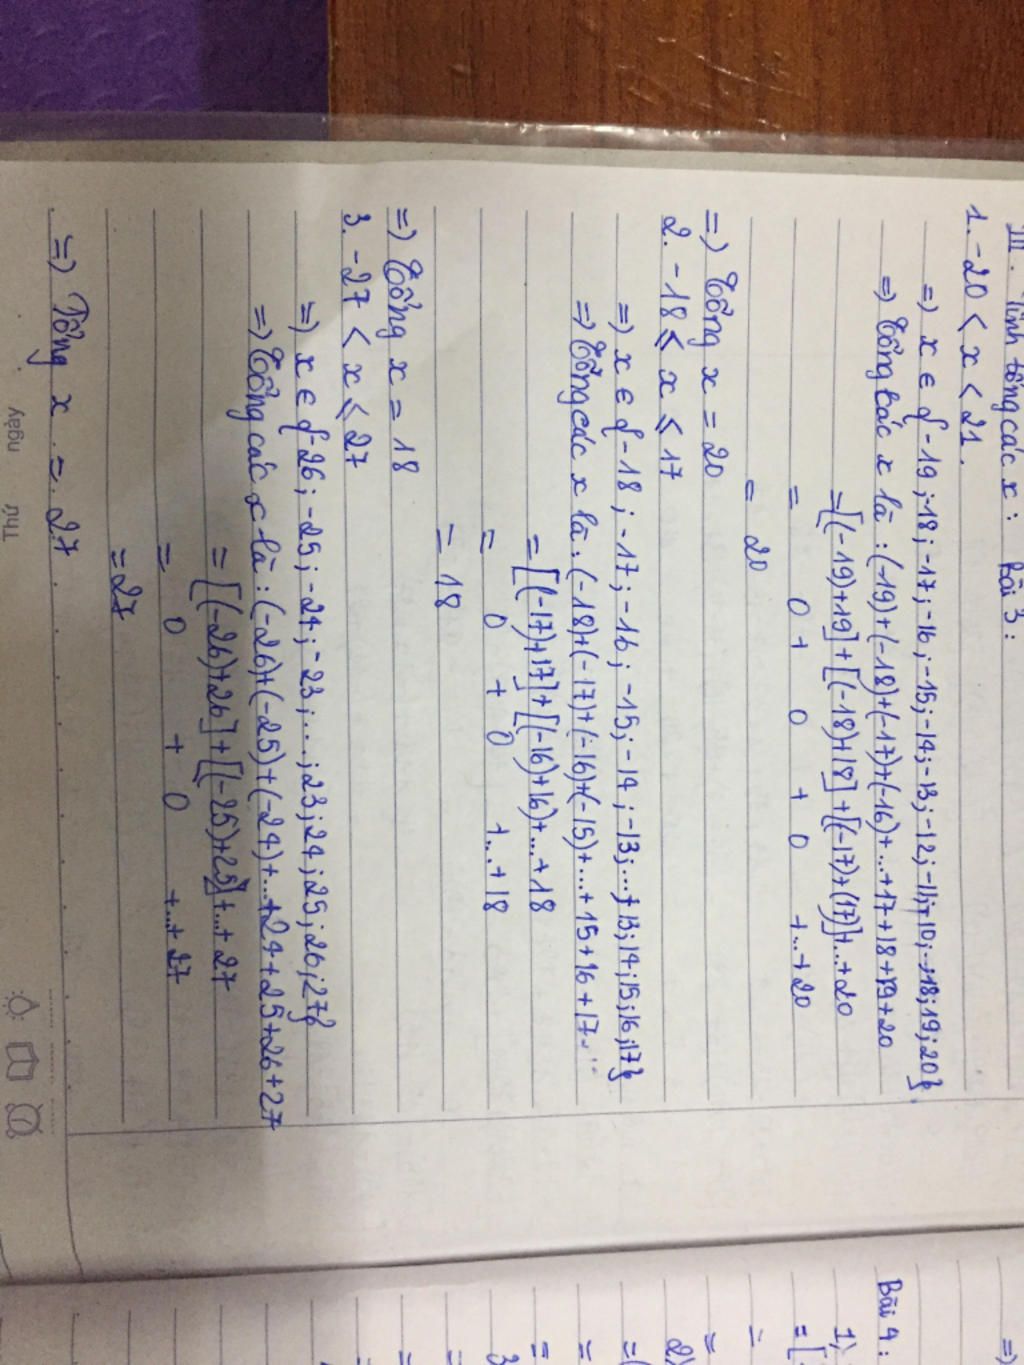 III. Tính tổng các x : Bài 3 :
1. -20 < x < 21.
=) x ∈ { -19 ; -18 ; -17 ; -16 ; -15 ; -14 ; -13 ; -12 ; -11 ; -10 ; ... 18 ; 19 ; 20 }.
=) Tổng các x là : (-19) + (-18) + (-17) + (-16) + ... + 17 + 18 + 19 + 20
= [(-19) + 19] + [(-18) + 18] + [(-17) + (17)] + ... + 20
= 0 + 0 + 0 + ... + 20
= 20
=) Tổng x = 20
2. -18 ≤ x ≤ 17
=) x ∈ { -18 ; -17 ; -16 ; -15 ; -14 ; -13 ; ... + 13 ; 14 ; 15 ; 16 ; 17 }
=) Tổng các x là : (-18) + (-17) + (-16) + (-15) + ... + 15 + 16 + 17
= [(-17) + 17] + [(-16) + 16) + ... + 18
= 0 + 0 + ... + 18
= 18
=) Tổng x = 18
3. -27 < x ≤ 27
=) x ∈ { -26 ; -25 ; -24 ; -23 ; ... ; 23 ; 24 ; 25 ; 26 ; 27 }
=) Tổng các x là : (-26) + (-25) + (-24) + ... + 24 + 25 + 26 + 27
= [(-26) + 26] + [(-25) + 25] + ... + 27
= 0 + 0 + ... + 27
= 27
=) Tổng x = 27
Thứ ngày
=)
Bài 4 :
1)
= [
=
=
2)
= (
=
=
3
=
=
=